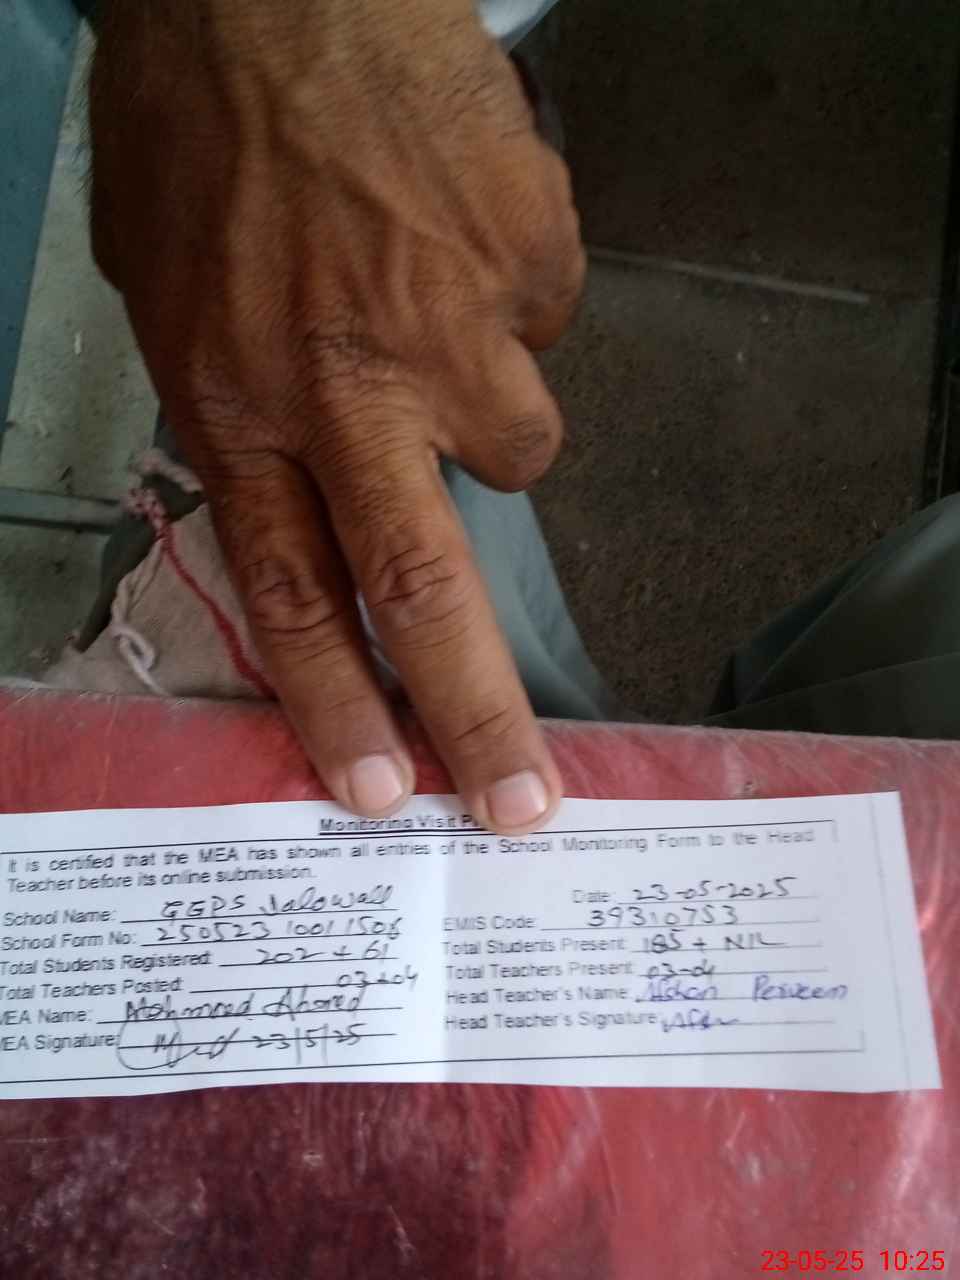 Monitoring Visit
It is certified that the MEA has shown all entries of the School Monitoring Form to the Head
Teacher before its online submission.
Date: 23-05-2025
School Name: GGPS Jalowali
EMIS Code: 39310753
School Form No: 250523 1001 1506
Total Students Present: 185 + NIL
Total Students Registered: 202 + 61
Total Teachers Present: 03-04
Total Teachers Posted: 03+04
Head Teacher's Name: Afshan Perveen
MEA Name: Mohmmed Ahmed
Head Teacher's Signature:
MEA Signature: 23/5/25
23-05-25 10:25